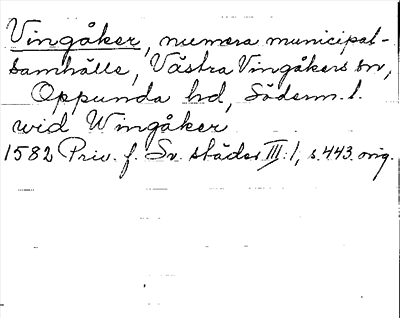 Vingåker, numera municipal-
samhälle, Västra Vingåkers sn,
Oppunda hd, Söderm. l.
wid Wingåker
1582 Priv. f. Sv. städer III:1, s. 443. orig.